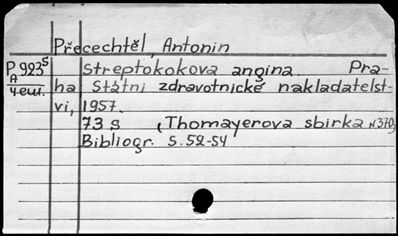 Přecechtěl, Antonin
P 923s Streptokokova angina. Pra-
A
чеш. ha Státni zdravotnické nakladatelst-
vi, 1957.
73 s (Thomayerova sbirka N370)
Bibliogr. S. 52-54